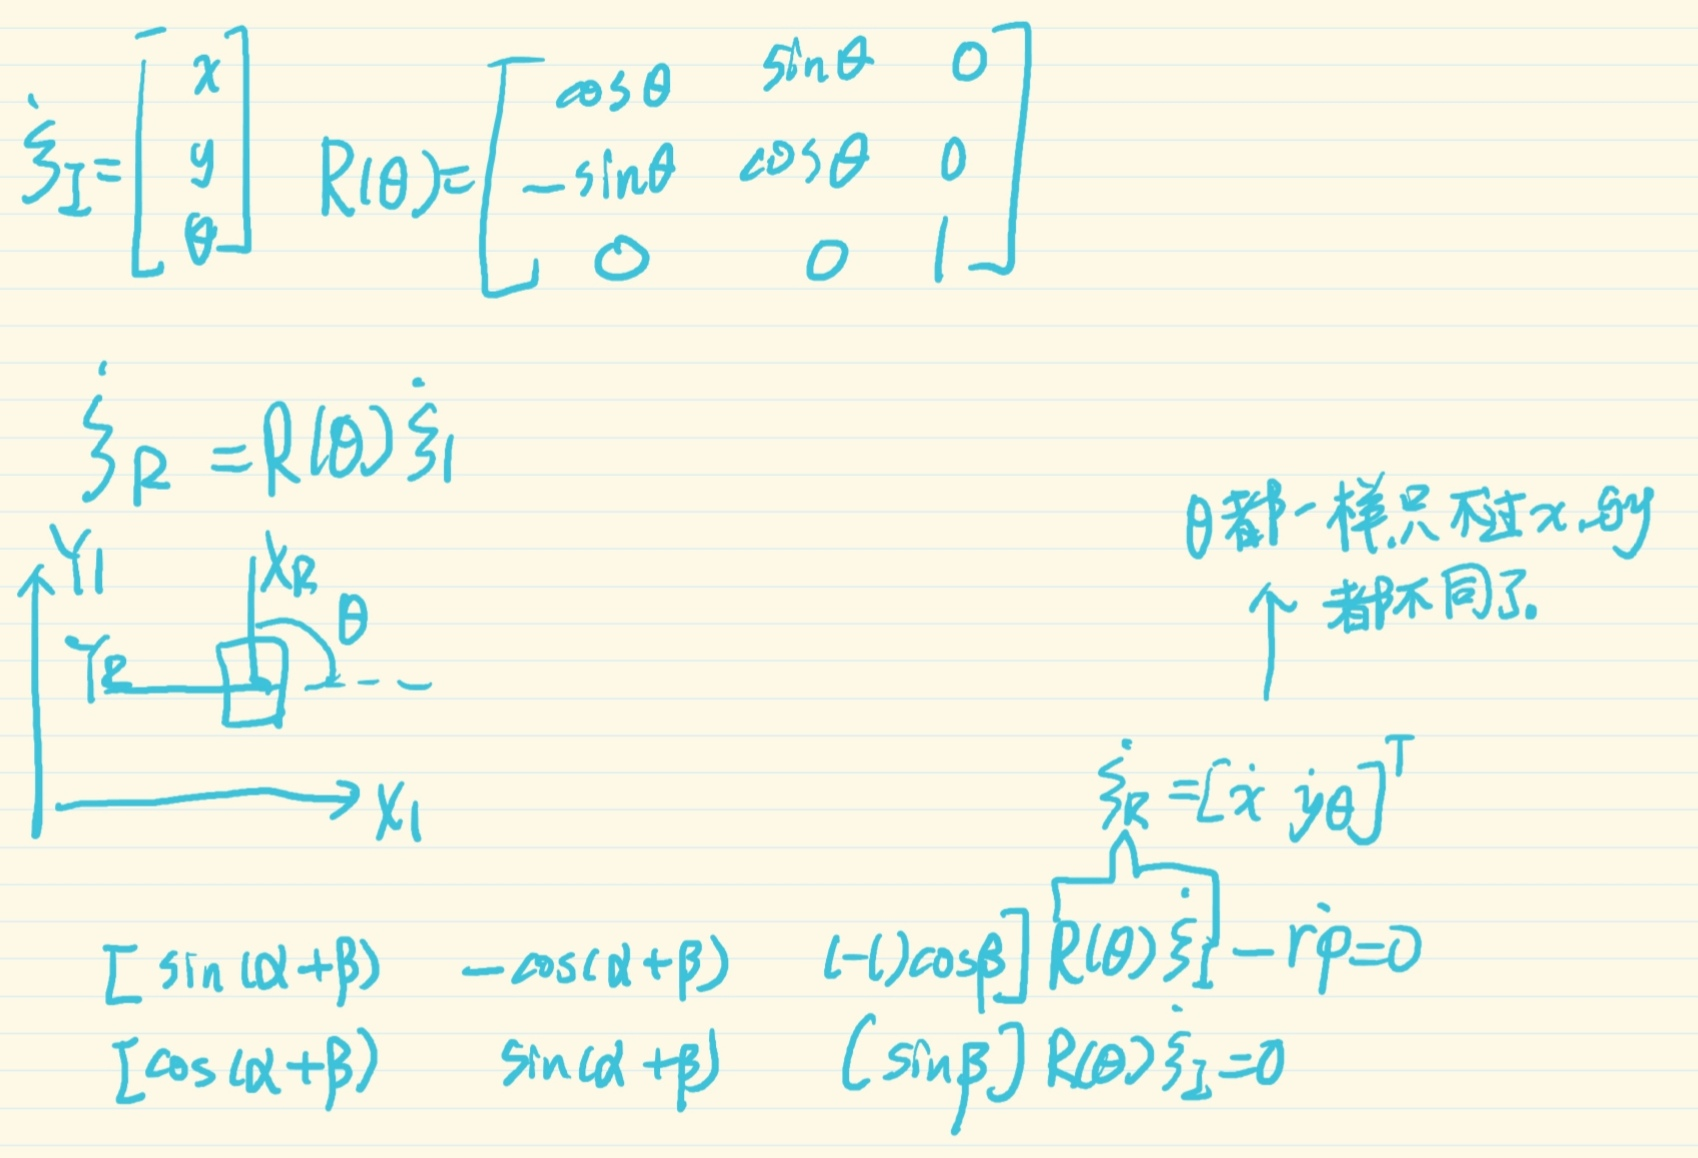 ξ̇_I = [x y θ] R(θ) = [cosθ sinθ 0
-sinθ cosθ 0
0 0 1]
ξ̇_R = R(θ) ξ̇_I
Y_I
X_R
θ
Y_R
X_I
θ都一样.只不过x、y的
都不同了.
ξ̇_R = [ẋ ẏ θ]^T
[sin(α+β) -cos(α+β) (-l)cosβ] R(θ) ξ̇_I - rφ̇ = 0
[cos(α+β) sin(α+β) (sinβ] R(θ) ξ̇_I = 0